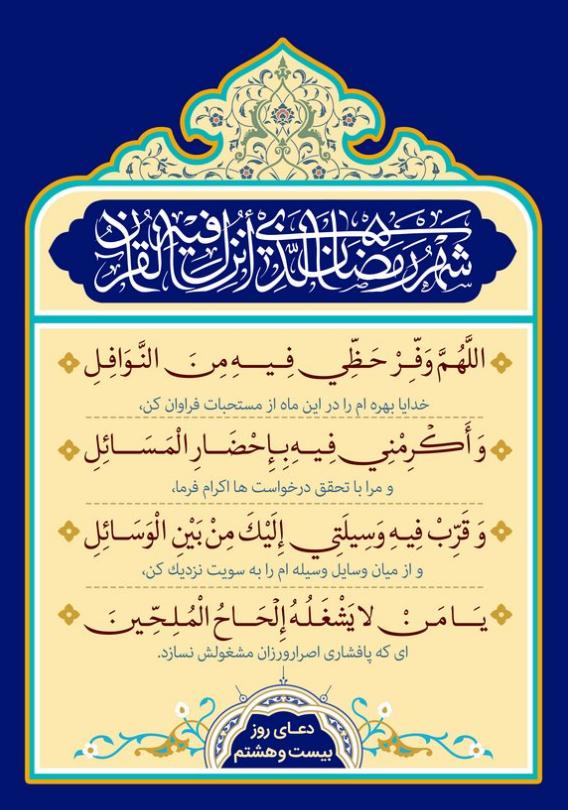 شَهْرُ رَمَضَانَ الَّذِي أُنْزِلَ فِيهِ الْقُرْآنُ
اللَّهُمَّ وَفِّرْ حَظِّي فِيهِ مِنَ النَّوَافِلِ
خدایا بهره ام را در این ماه از مستحبات فراوان کن،
وَ أَكْرِمْنِي فِيهِ بِإِحْضَارِ الْمَسَائِلِ
و مرا با تحقق درخواست ها اکرام فرما،
وَ قَرِّبْ فِيهِ وَسِيلَتِي إِلَيْكَ مِنْ بَيْنِ الْوَسَائِلِ
و از میان وسایل وسیله ام را به سویت نزدیك کن،
يَا مَنْ لا يَشْغَلُهُ إِلْحَاحُ الْمُلِحِّينَ
ای که پافشاری اصرارورزان مشغولش نسازد.
دعای روز
بیست و هشتم